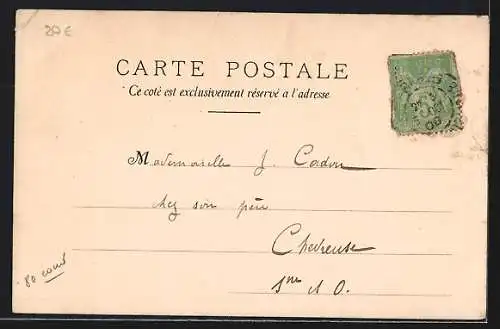 20 €
CARTE POSTALE
Ce coté est exclusivement réservé a l'adresse
Mademoiselle J. Cadou
chez son père
Chevreuse
Sne et O.